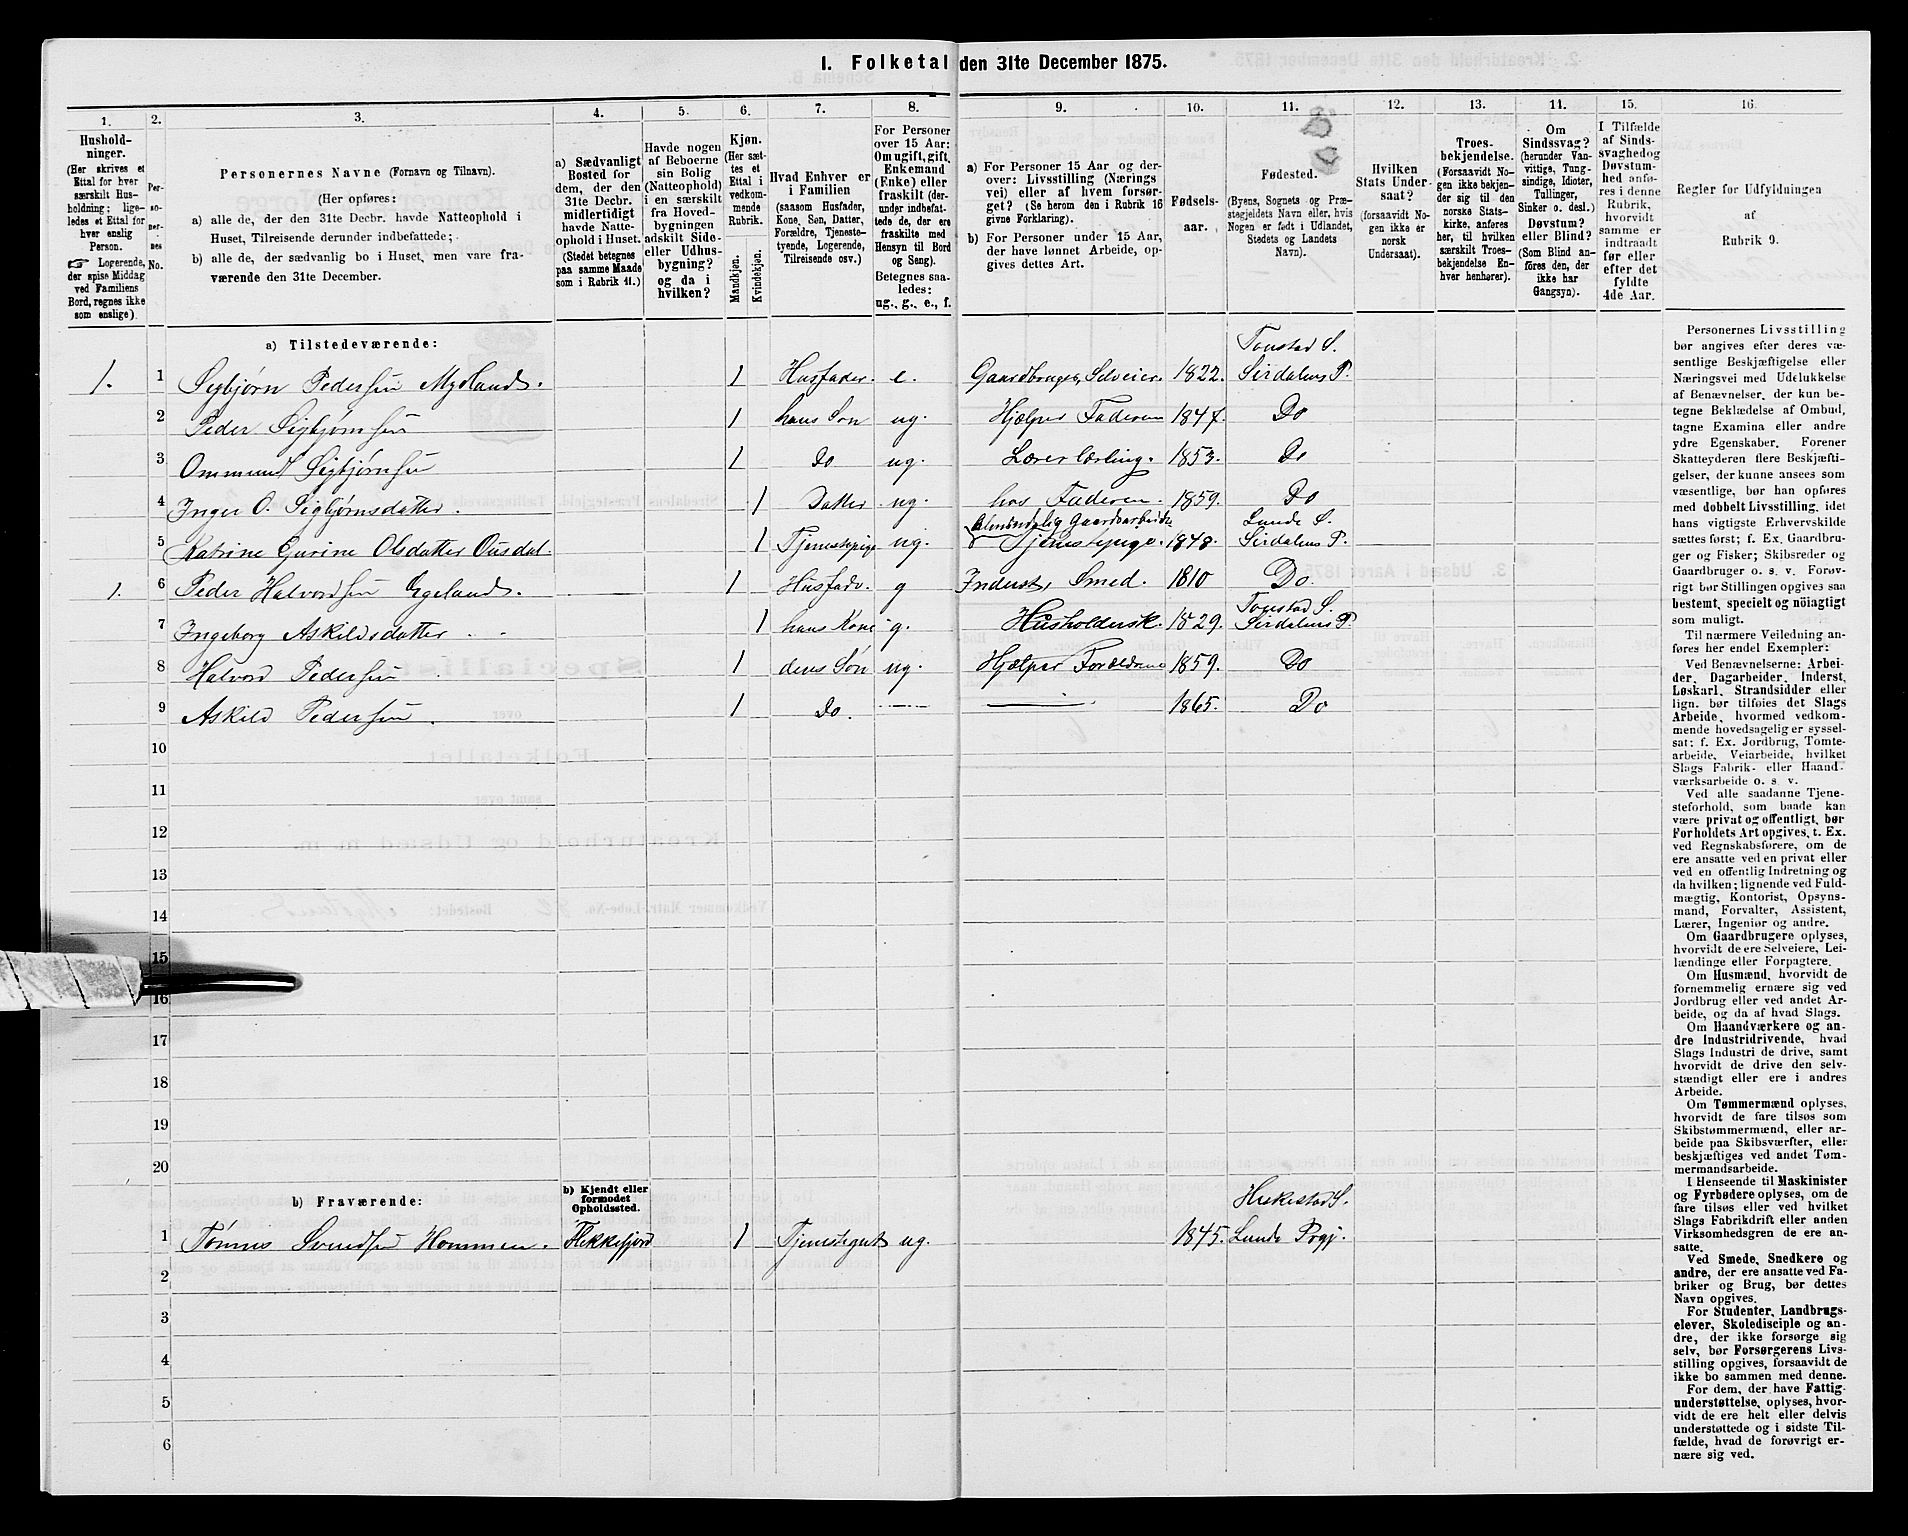 1. Folketal den 31te December 1875.
1. 2. 3. 4. 5. 6. 7. 8. 9. 10. 11. 12. 13. 11. 15. 16.
Hushold-
ninger.
(Her skrives et
Ettal for hver
særskilt Hus-
holdning; lige-
ledes et Ettal for
hver enslig
Person.
☞ Logerende,
der spise Middag
ved Familiens
Bord, regnes ikke
som enslige).
Per-
so-
ner-
nes
No.
Personernes Navne (Fornavn og Tilnavn).
(Her opføres:
a) alle de, der den 31te Decbr. havde Natteophold i
Huset, Tilreisende derunder indbefattede;
b) alle de, der sædvanlig bo i Huset, men vare fra-
værende den 31te December.
a) Sædvanligt
Bosted for
dem, der den
31te Decbr.
midlertidigt
havde Natte-
ophold i Huset.
(Stedet betegnes
paa samme Maade
som i Rubrik 11.)
Havde nogen
af Beboerne
sin Bolig
(Natteophold)
i en særskilt
fra Hoved-
bygningen
adskilt Side-
eller Udhus-
bygning?
og da i
hvilken?
Kjøn.
(Her sæt-
tes et
Ettal i
vedkom-
mende
Rubrik.
Mandkjøn.
Kvindekjøn.
Hvad Enhver er
i Familien
(saasom Husfader,
Kone, Søn, Datter,
Forældre, Tjeneste-
tyende, Logerende,
Tilreisende osv.)
For Personer
over 15 Aar:
Om ugift, gift,
Enkemand
(Enke) eller
fraskilt (der-
under indbefat-
tede de, der ere
fraskilte med
Hensyn til Bord
og Seng).
Betegnes saa-
ledes:
ug., g., e., f.
a) For Personer 15 Aar og der-
over: Livsstilling (Nærings
vei) eller af hvem forsør-
get? (Se herom den i Rubrik 16
givne Forklaring).
b) For Personer under 15 Aar,
der have lønnet Arbeide, op-
gives dettes Art.
Fødsels-
aar.
Fødested.
(Byens, Sognets og Præ-
stegjeldets Navn eller, hvis
Nogen er født i Udlandet,
Stedets og Landets
Navn).
Hvilken
Stats Under-
saat?
(forsaavidt No-
gen ikke er
norsk
Undersaat).
Troes-
bekjendelse.
(Forsaavidt No-
gen ikke bekjen-
der sig til den
norske Stats-
kirke, anføres
her, til hvilken
særskilt Troes-
bekjendelse En-
hver henhører).
Om
Sindssvag?
(herunder Van-
vittige, Tung-
sindige, Idioter,
Tullinger,
Sinker o. desl.)
Døvstum?
eller Blind?
(Som Blind an-
føres den, der
ikke har
Gangsyn).
I Tilfælde
af Sinds-
svaghed og
Døvstum-
hed anfø-
res i denne
Rubrik,
hvorvidt
samme er
indtraadt
før eller
efter det
fyldte
4de Aar.
Regler for Udfyldningen
af
Rubrik 9.
a) Tilstedeværende:
1. 1 Sigbjørn Pedersen Mysland. 1 Husfader. e. Gaardbruger, Selveier. 1822. Tonstad S. Sirdalens P.
2 Peder Sigbjørnsen 1 hans Søn ug. Hjælper Faderen 1847. Do
3 Ommund Sigbjørnsen 1 Do ug. Lærerlærling. 1853. Do
4 Inger O. Sigbjørnsdatter. 1 Datter ug. hos Faderen. 1859. Do
5 Katrine Gurine Olsdatter Ousdal. 1 Tjenestepige ug. Almindelig Gaardsarbeide Tjenestepige. 1848. Lunde S. Sirdalens P.
1. 6 Peder Halvordsen Egeland. 1 Husfadr. g Inderst, Smed. 1810 Do.
7 Ingeborg Askildsdatter 1 hans Kone g. Husholdersk. 1829. Tonstad S. Sirdalens P.
8 Halvord Pedersen 1 deres Søn ug. Hjælper Forældrene 1859. Do
9 Askild Pedersen. 1 Do. 1865. Do
10
11
12
13
14
15
16
17
18
19
20
b) Fraværende:
b) Kjendt eller
formodet
Opholdssted.
1 Tønnes Svendsen Hommen. Flekkefjord 1 Tjenestegut ug. 1845. Heskestad S. Lunde Prgj.
2
3
4
5
6
Personernes Livsstilling
bør angives efter deres væ-
sentlige Beskjæftigelse eller
Næringsvei med Udelukkelse
af Benævnelser, der kun be-
tegne Beklædelse af Ombud,
tagne Examina eller andre
ydre Egenskaber. Forener
Skatteyderen flere Beskjæfti-
gelser, der kunne ansees som
væsentlige, bør han opføres
med dobbelt Livsstilling, idet
hans vigtigste Erhvervskilde
sættes først; f. Ex. Gaardbru-
ger og Fisker; Skibsreder og
Gaardbruger o. s. v. Forøv-
rigt bør Stillingen opgives saa
bestemt, specielt og nöiagtigt
som muligt.
Til nærmere Veiledning an-
føres her endel Exempler:
Ved Benævnelserne: Arbei-
der, Dagarbeider, Inderst,
Løskarl, Strandsidder eller
lign. bør tilføies det Slags
Arbeide, hvormed vedkom-
mende hovedsagelig er syssel-
sat; f. Ex. Jordbrug, Tømte-
arbeide, Veiarbeide, hvilket
Slags Fabrik- eller Haand-
værksarbeide o. s. v.
Ved alle saadanne Tjene-
steforhold, som baade kan
være privat og offentligt, bør
Forholdets Art opgives, t. Ex.
ved Regnskabsførere, om de
ere ansatte ved en privat eller
ved en offentlig Indretning og
da hvilken; lignende ved Fuld-
mægtig, Kontorist, Opsyns-
mand, Forvalter, Assistent,
Lærer, Ingeniør og andre.
Om Gaardbrugere oplyses,
hvorvidt de ere Selveiere, Lei-
lændinge eller Forpagtere.
Om Husmænd, hvorvidt de
fornemmelig ernære sig ved
Jordbrug eller ved andet Ar-
beide, og da af hvad Slags.
Om Haandværkere og an-
dre Industridrivende, hvad
Slags Industri de drive, samt
hvorvidt de drive den selv-
stændigt eller ere i andres
Arbeide.
Om Tømmermænd oplyses,
hvorvidt de fare tilsøs som
Skibstømmermænd, eller ar-
beide paa Skibsværfter, eller
beskjæftiges ved andet Tøm-
mermandsarbeide.
I Henseende til Maskinister
og Fyrbødere oplyses, om de
fare tilsøs eller ved hvilket
Slags Fabrikdrift eller anden
Virksomhedsgren de ere an-
satte.
Ved Smede, Snedkere og
andre, der ere ansatte ved Fa-
briker og Brug, bør dettes
Navn opgives.
For Studenter, Landbrugs-
elever, Skoledisciple og an-
dre, der ikke forsørge sig
selv, bør Forsørgerens Livs-
stilling opgives, forsaavidt de
ikke bo sammen med denne.
For dem, der have Fattig-
understøttelse, oplyses, hvor-
vidt de ere helt eller delvis
understøttede og i sidste Til-
fælde, hvad de forøvrigt er-
nære sig ved.